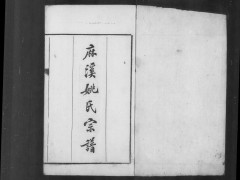 麻溪姚氏宗譜